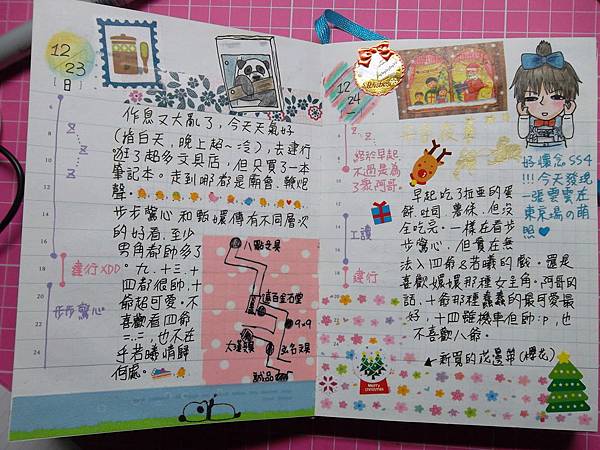 12
23
日
作息又大亂了,今天天氣好
(指白天,晚上超~冷),去建行
逛了超多文具店,但只買了一本
筆記本。走到哪都是廟會、鞭炮
聲。
步步驚心和甄嬛傳有不同層次
的好看,至少
男角都帥多了
XD。九、十三、十
四都很帥,十
爺超可愛。不
喜歡看四爺
=..=,也不在
乎若曦情歸
何處。
6
8
10
12
14
16
18
20
22
24
Z
Z
Z
建行XDD
步步驚心
八點文具
遠百金石堂
9x9
大漢文具
誠品
12
24
終於早起
不過是為
了歐阿哥。
工讀
建行
好懷念SS4
!!!今天發現
一張雲雲在
東京場の萌
照♥
早起吃了拉亞的蛋
餅、吐司、薯條,但沒
全吃完。一樣在看步
步驚心,但實在無
法入四爺&若曦的戲。還是
喜歡嬛嬛那種女主角。阿哥的
話,十爺那種蠢蠢的最可愛最
好,十四雖機車但帥:p,也
不喜歡八爺。
←新買的花邊帶(櫻花)
Merry
Christmas